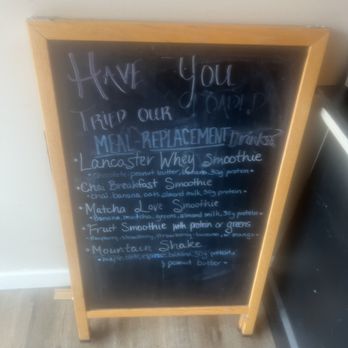 HAVE YOU
TRIED OUR LOADED
MEAL-REPLACEMENT Drinks?
• Lancaster Whey Smoothie
• chocolate, peanut butter, banana, 30g protein •
• Chai Breakfast Smoothie
• chai, banana, oats, almond milk, 30g protein •
• Matcha Love Smoothie
• banana, matcha, greens, almond milk, 30g protein •
• Fruit Smoothie with protein or greens
• raspberry, strawberry, mango •
• Mountain Shake
• maple, espresso, banana, 30g protein,
peanut butter •